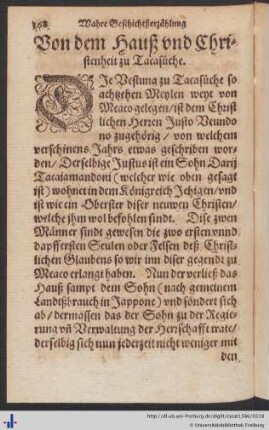 168 Wahre Geschichtserzählung
Von dem Hauß vnd Chri-
stenheit zu Tacasüche.
DIe Vestung zu Tacasüche so
achtzehen Meylen weyt von
Meaco gelegen / ist dem Christ
lichen Herren Justo Veundo
no zugehörig / von welchem
verschinens Jahrs etwas geschriben wor-
den / Derselbige Justus ist ein Sohn Darij
Tacaiamandoni (welcher wie oben gesagt
ist) wohnet in dem Königreich Jehigen / vnd
ist wie ein Oberster diser neuwen Christen /
welche jhm wol befohlen sindt. Dise zwen
Männer sindt gewesen die zwo ersten vnnd
dapffersten Seulen oder Felsen deß Christ-
lichen Glaubens so wir inn diser gegendt zu
Meaco erlangt haben. Nun der verließ das
Hauß sampt dem Sohn (nach gemeinem
Landtßbrauch in Jappone) vnd söndert sich
ab / dermassen das der Sohn zu der Regie-
rung vñ Verwaltung der Herrschafft trate /
derselbig sich nun jederzeit nicht weniger mit
den
http://dl.ub.uni-freiburg.de/diglit/
© Universitätsbibliothek Freiburg